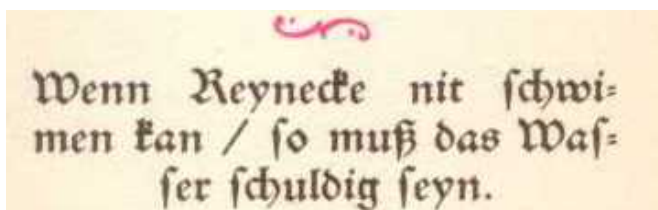 Wenn Reynecke nit ſchwi⸗
men kan / ſo muß das Waſ⸗
ſer ſchuldig ſeyn.